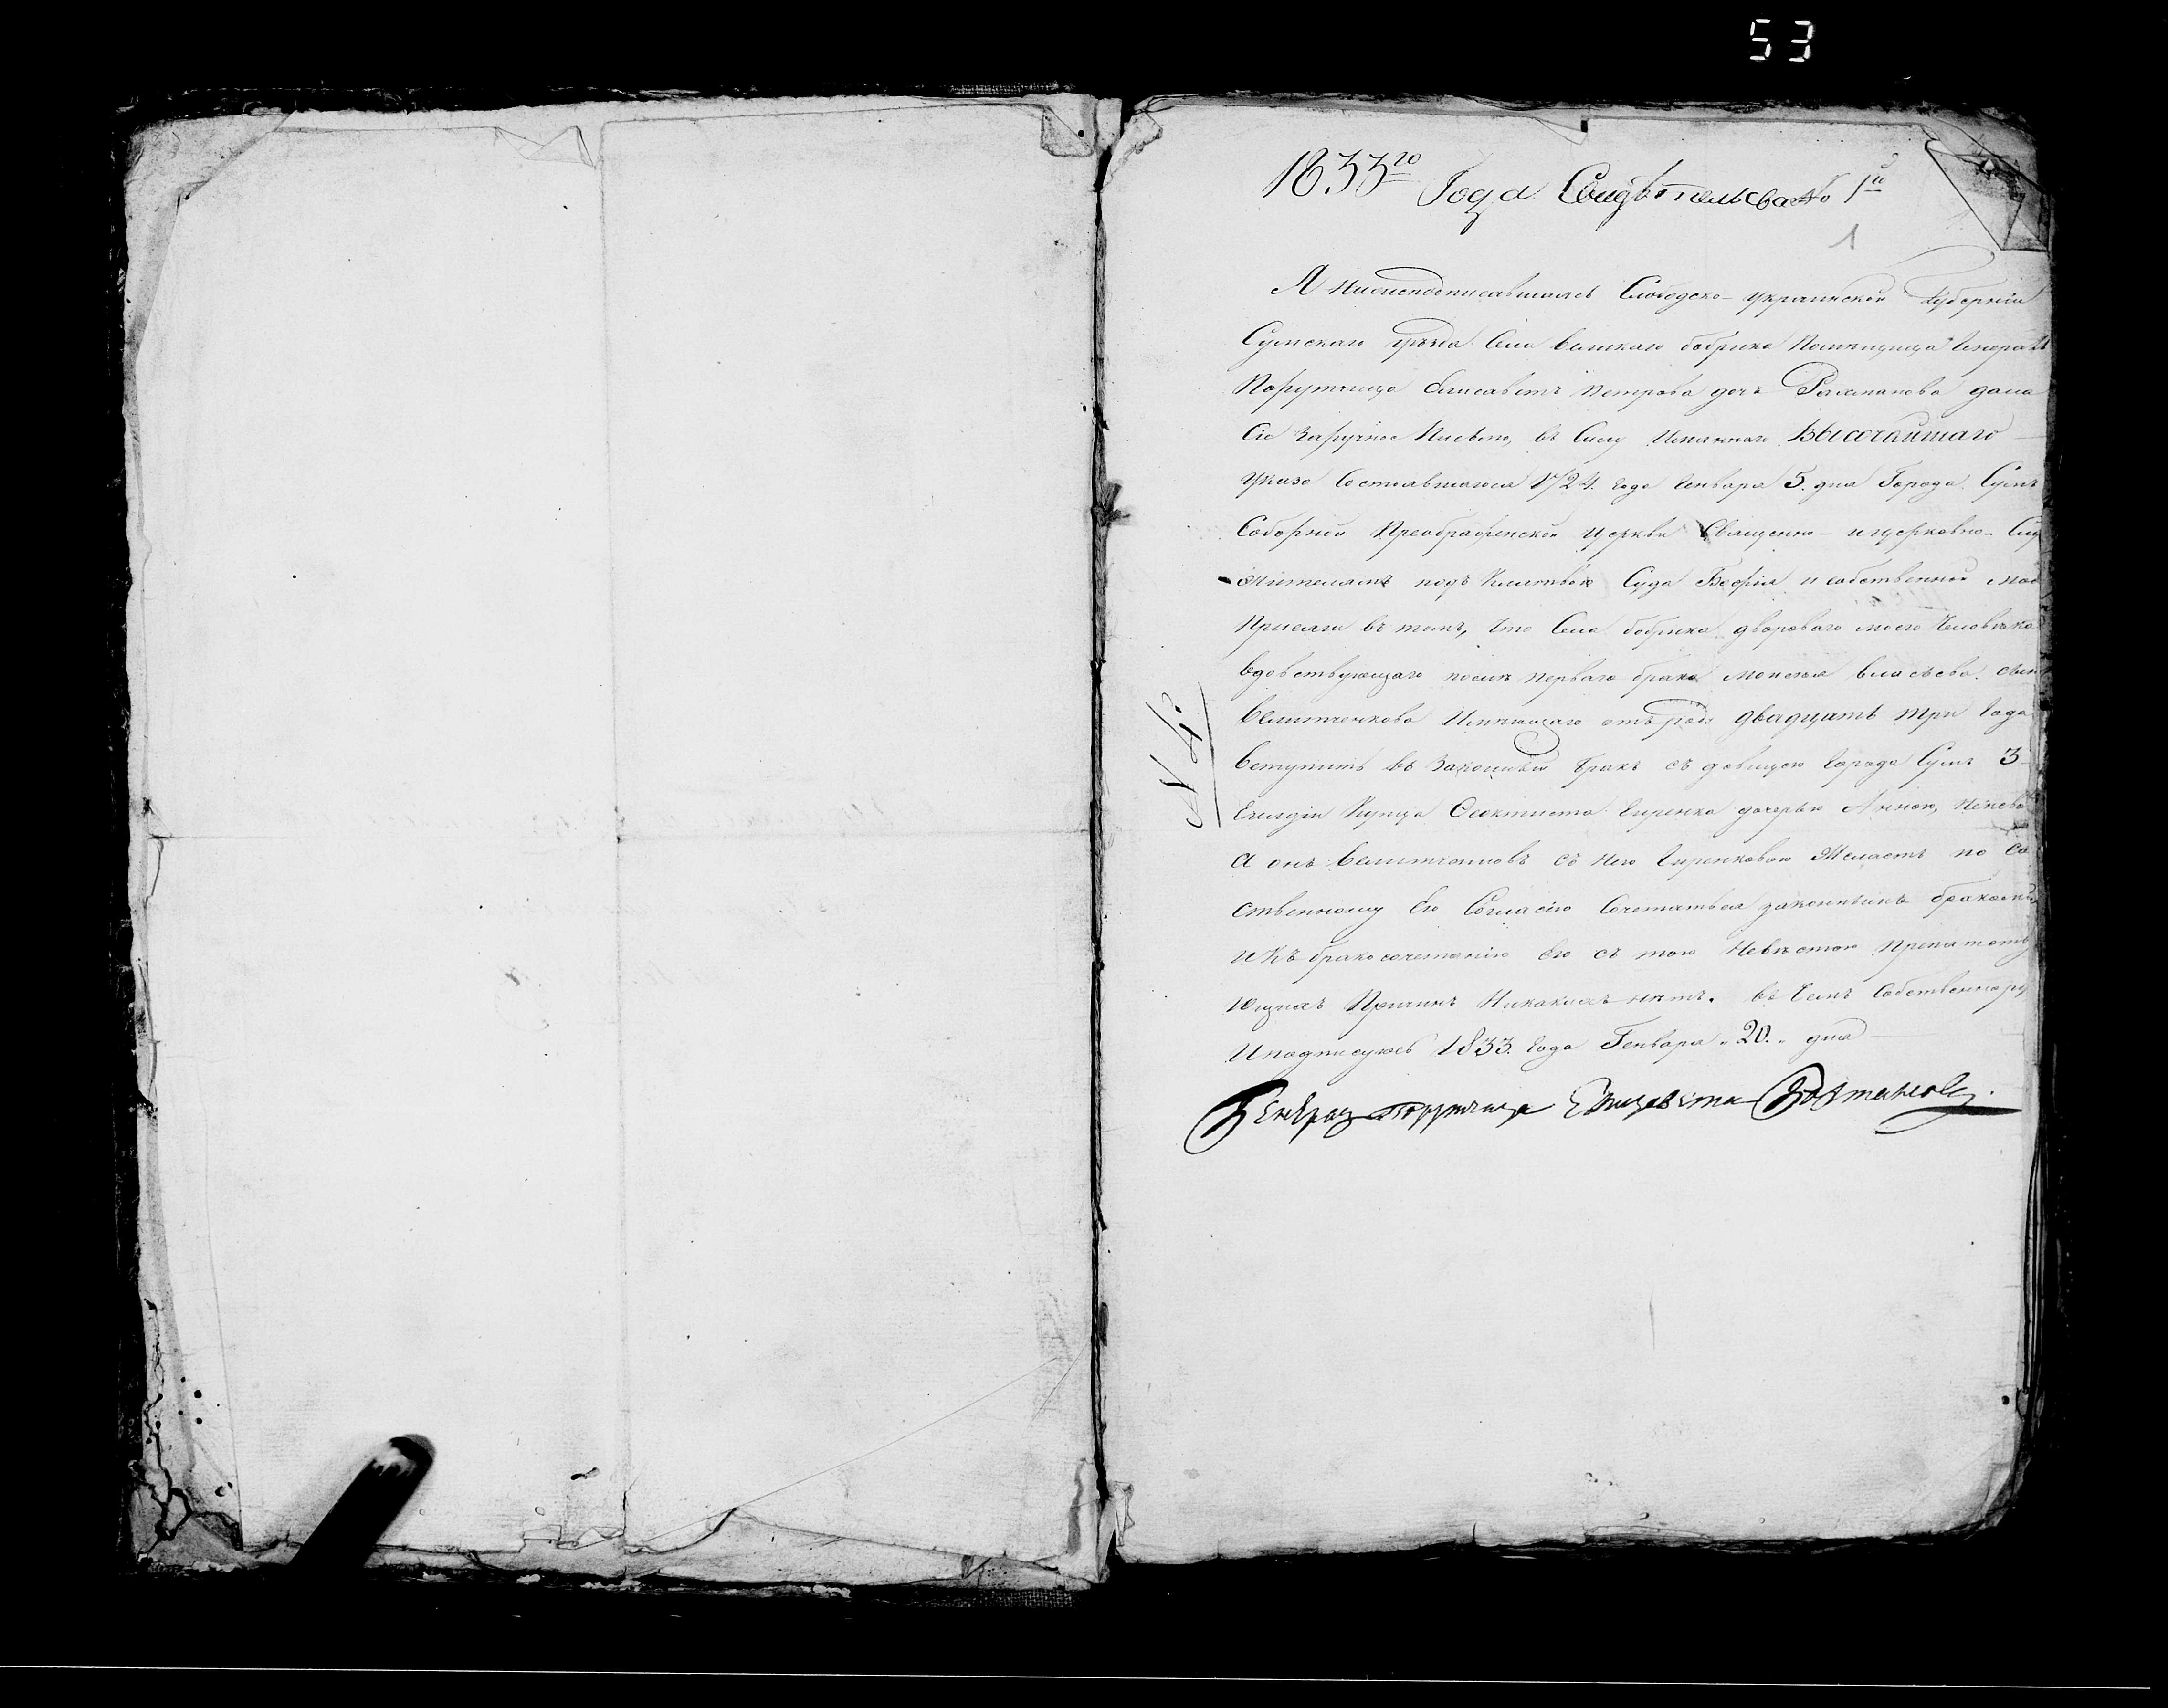 53
1833го Года Свидѣтельсва No 1й
1
Я Нижеподписавшаясь Слободско-украинской Губерніи
Сумскаго уѣзда Села великаго бобрика Помѣщица Генералъ
Порутчица Елисаветъ Петрова дочь Рахманова дала
Сіе Заручное Писмо, въ Силу Имяннаго Высочайшаго
указа Состоявшагося 1724. года Генваря 5. дня Города Сумъ
Соборной Преображенской Церкви Священно- ицерковно- Слу
жителямъ подъ Клятвою Суда Божія и собственной мое
Присяги въ томъ, что Села бобрика двороваго моего Человѣка
вдовствующаго послѣ перваго брака Моисея Власьева сын
Имѣющаго отъ роду двадцать три года
вступить въ Законный бракъ съ девицею города Сумъ 3
Гилдіи Купца Феоктиста Гиренка дочерью Анною,
А онъ съ Нею Гиренковою Желаетъ по Со
ственному Его Согласію Сочетаться законнымъ бракомъ
и Къ бракосочетанію Его съ тою Невѣстою Препятств
ующихъ Причинъ Никакихъ нѣтъ. въ Чемъ Собственнору
И подписуюсь 1833. года Генваря „20.„ дня
Генералъ Порутчица Елизавета Рахманова.